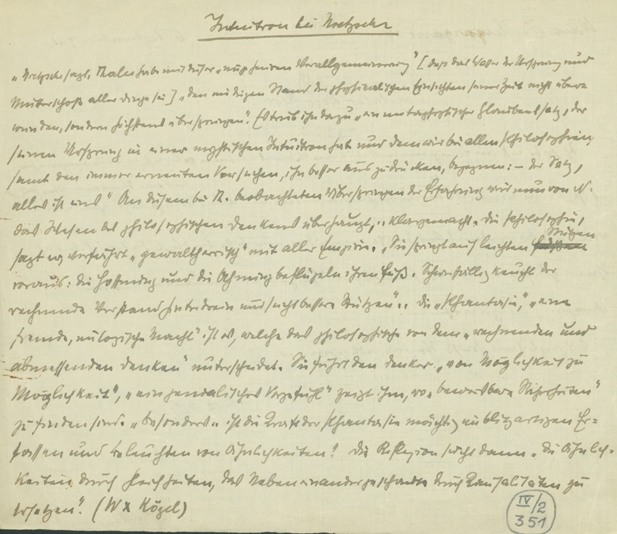 Intuition bei Nietzsche
„Nietzsche sagt, Thales habe mit dieser „ungeheuren Verallgemeinerung" [dass das Wasser der Ursprung und
Mutterschoß aller Dinge sei] „den niedrigen Stand der physikalischen Einsichten seiner Zeit nicht über=
wunden, sondern höchstens übersprungen". Es trieb ihn dazu „ein metaphysischer Glaubenssatz, der
seinen Ursprung in einer mystischen Intuition hat und dem wir bei allen Philosophien,
samt den immer erneuten Versuchen, ihn besser auszudrücken, begegnen: – der Satz,
alles ist eins" An diesem bei Th. beobachteten Überspringen der Erfahrung wird nun von N.
das Wesen des philosophischen Denkens überhaupt klargemacht. Die Philosophie,
sagt er, verfährt „gewaltherrisch" mit aller Empirie. „Sie springt auf leichten Stützen
voraus: die Hoffnung und die Ahnung beflügeln ihren Fuß. Schwerfällig keucht der
rechnende Verstand hinterdrein und sucht bessere Stützen".. Die „Phantasie", „eine
fremde, unlogische Macht" ist es, welche das philosophische von dem „rechnenden und
abmessenden Denken" unterscheidet. Sie führt den Denker „von Möglichkeit zu
Möglichkeit", „ein genialisches Vorgefühl" zeigt ihm, wo „beweisbare Sicherheiten"
zu finden sind. „besonders.. ist die Kraft der Phantasie mächtig im blitzartigen Er=
fassen und Beleuchten von Ähnlichkeiten! Die Reflexion sucht dann.. die Ähnlich-
keiten durch Gleichheiten, das Nebeneinandergeschaute durch Kausalitäten zu
ersetzen". (W X Kögel)
IV/2
351